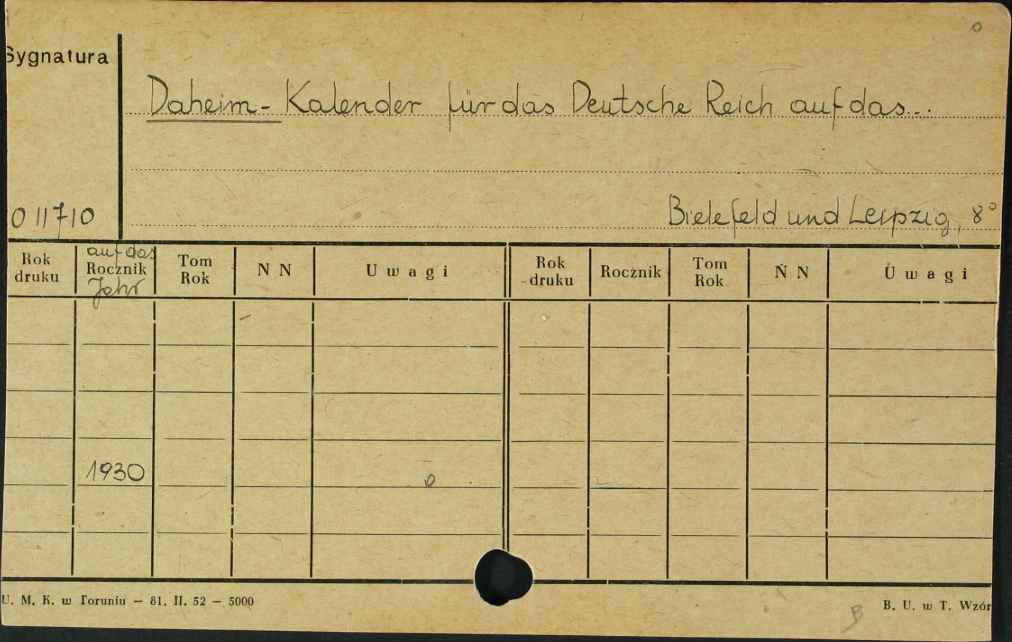 o
Sygnatura
Daheim - Kalender für das Deutsche Reich auf das...
011710
Bielefeld und Leipzig, 8°
Rok druku auf das Rocznik Jahr Tom Rok N N Uwagi Rok druku Rocznik Tom Rok N N Uwagi
1930 o
U. M. K. w Toruniu — 81. II. 52 — 5000
B
B. U. w T. Wzór